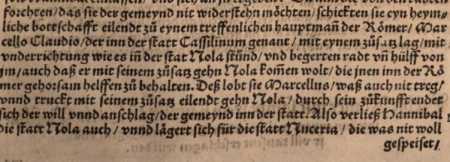 forchten/das sie der gemeynd nit widerstehn möchten/schickten sie eyn heym-
liche botschafft eilendt zů eynem treffenlichen hauptmañ der Römer/Mar
cello Claudio/der inn der statt Cassilinum genant/mit eynem zůsatz lag/mit
vnderrichtung wie es iñ der stat Nola stůnd/vnd begerten radt vñ hülff von
jm/auch daß er mit seinem zůsatz gehn Nola kom̃en wolt/die jnen inn der Rö
mer gehorsam helffen zů behalten. Deß lobt sie Marcellus/waß auch nit treg/
vnnd truckt mit seinem zůsatz eilendt gehn Nola/durch sein zůkunfft endet
sich der will vnnd anschlag/der gemeynd inn der statt. Also verließ Hannibal
die statt Nola auch/vnnd lägert sich für die statt Nuceria/die was nit woll
gespeiset/